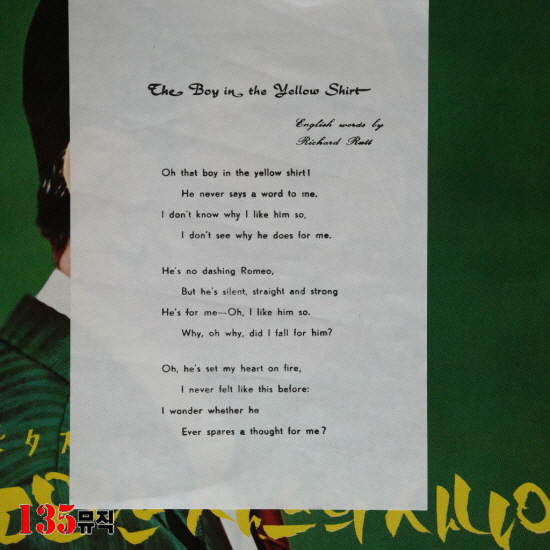 The Boy in the Yellow Shirt
English words by
Richard Rutt
Oh that boy in the yellow shirt!
He never says a word to me.
I don't know why I like him so,
I don't see why he does for me.
He's no dashing Romeo,
But he's silent, straight and strong
He's for me—Oh, I like him so.
Why, oh why, did I fall for him?
Oh, he's set my heart on fire,
I never felt like this before:
I wonder whether he
Ever spares a thought for me?
135뮤직